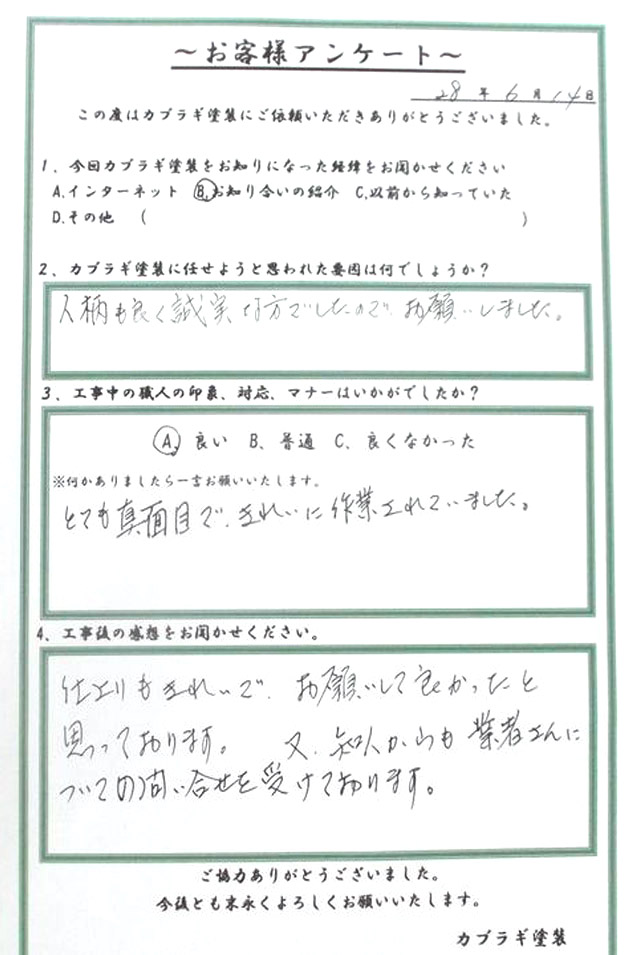 ～お客様アンケート～
28年6月14日
この度はカブラギ塗装にご依頼いただきありがとうございました。
1、今回カブラギ塗装をお知りになった経緯をお聞かせください
A.インターネット B.お知り合いの紹介 C.以前から知っていた
D.その他 ( )
2、カブラギ塗装に任せようと思われた要因は何でしょうか？
人柄も良く誠実な方でしたので、お願いしました。
3、工事中の職人の印象、対応、マナーはいかがでしたか？
A、良い B、普通 C、良くなかった
※何かありましたら一言お願いいたします。
とても真面目で、きれいに作業されていました。
4、工事後の感想をお聞かせください。
仕上りもきれいで、お願いして良かったと
思っております。 又、知人からも業者さんに
ついての問い合せを受けております。
ご協力ありがとうございました。
今後とも末永くよろしくお願いいたします。
カブラギ塗装